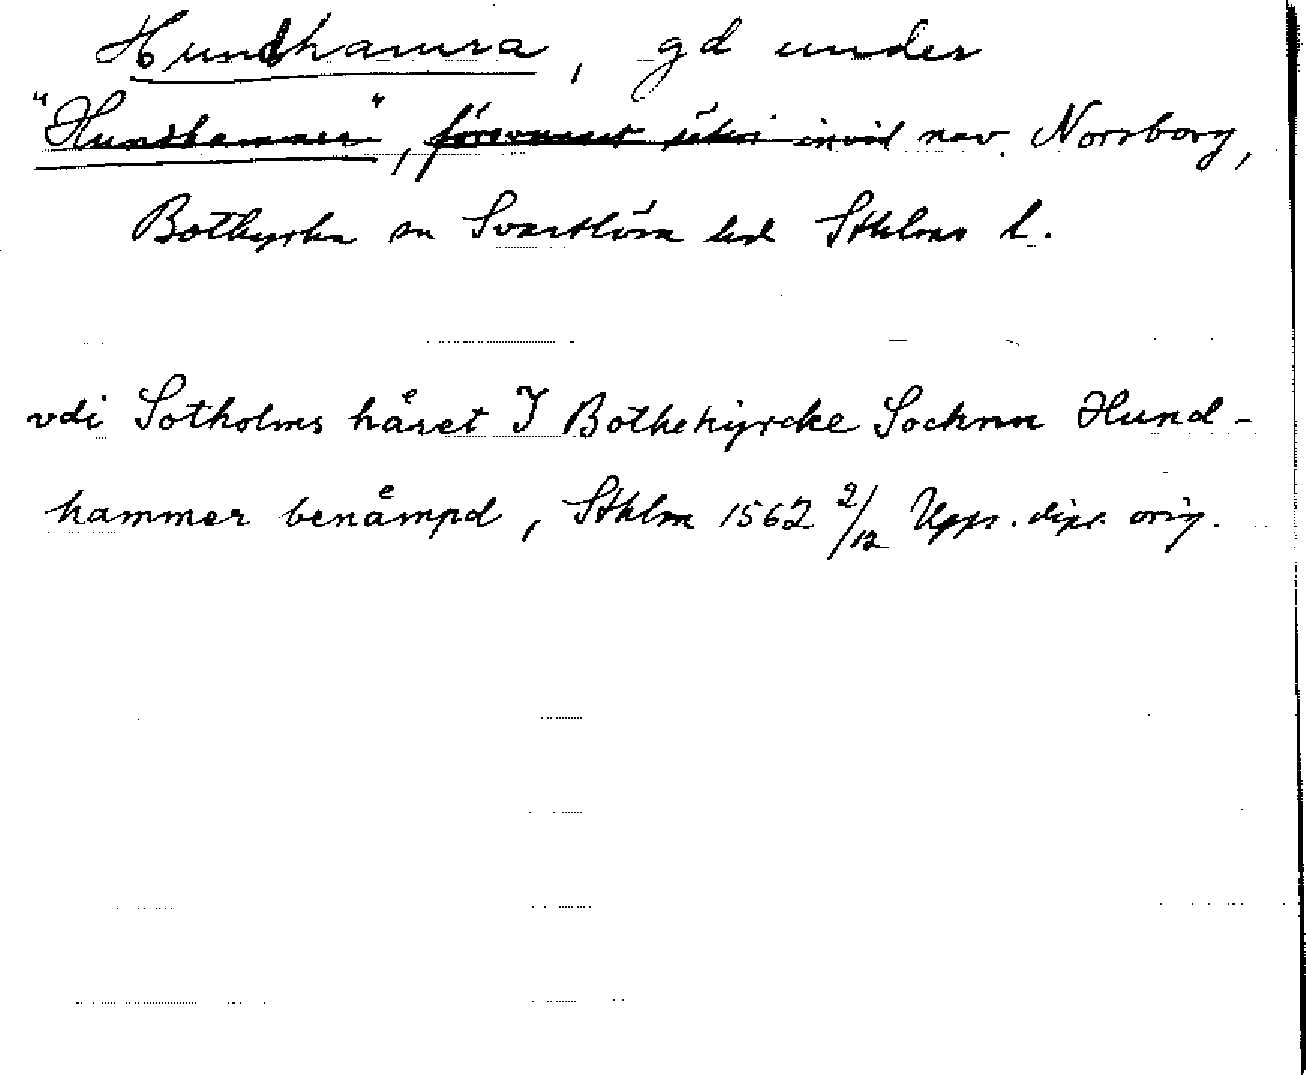 Hundhamra, gd under
"Hundhammer", försvunnet säteri invid nuv. Norsborg,
Botkyrka sn Svartlösa hd Sthlms l.
vdi Sotholms häret I Bothekyrcke Socknn Hund-
hammer benämpd, Sthlm 1562 2/12 Upps. dipl. orig.